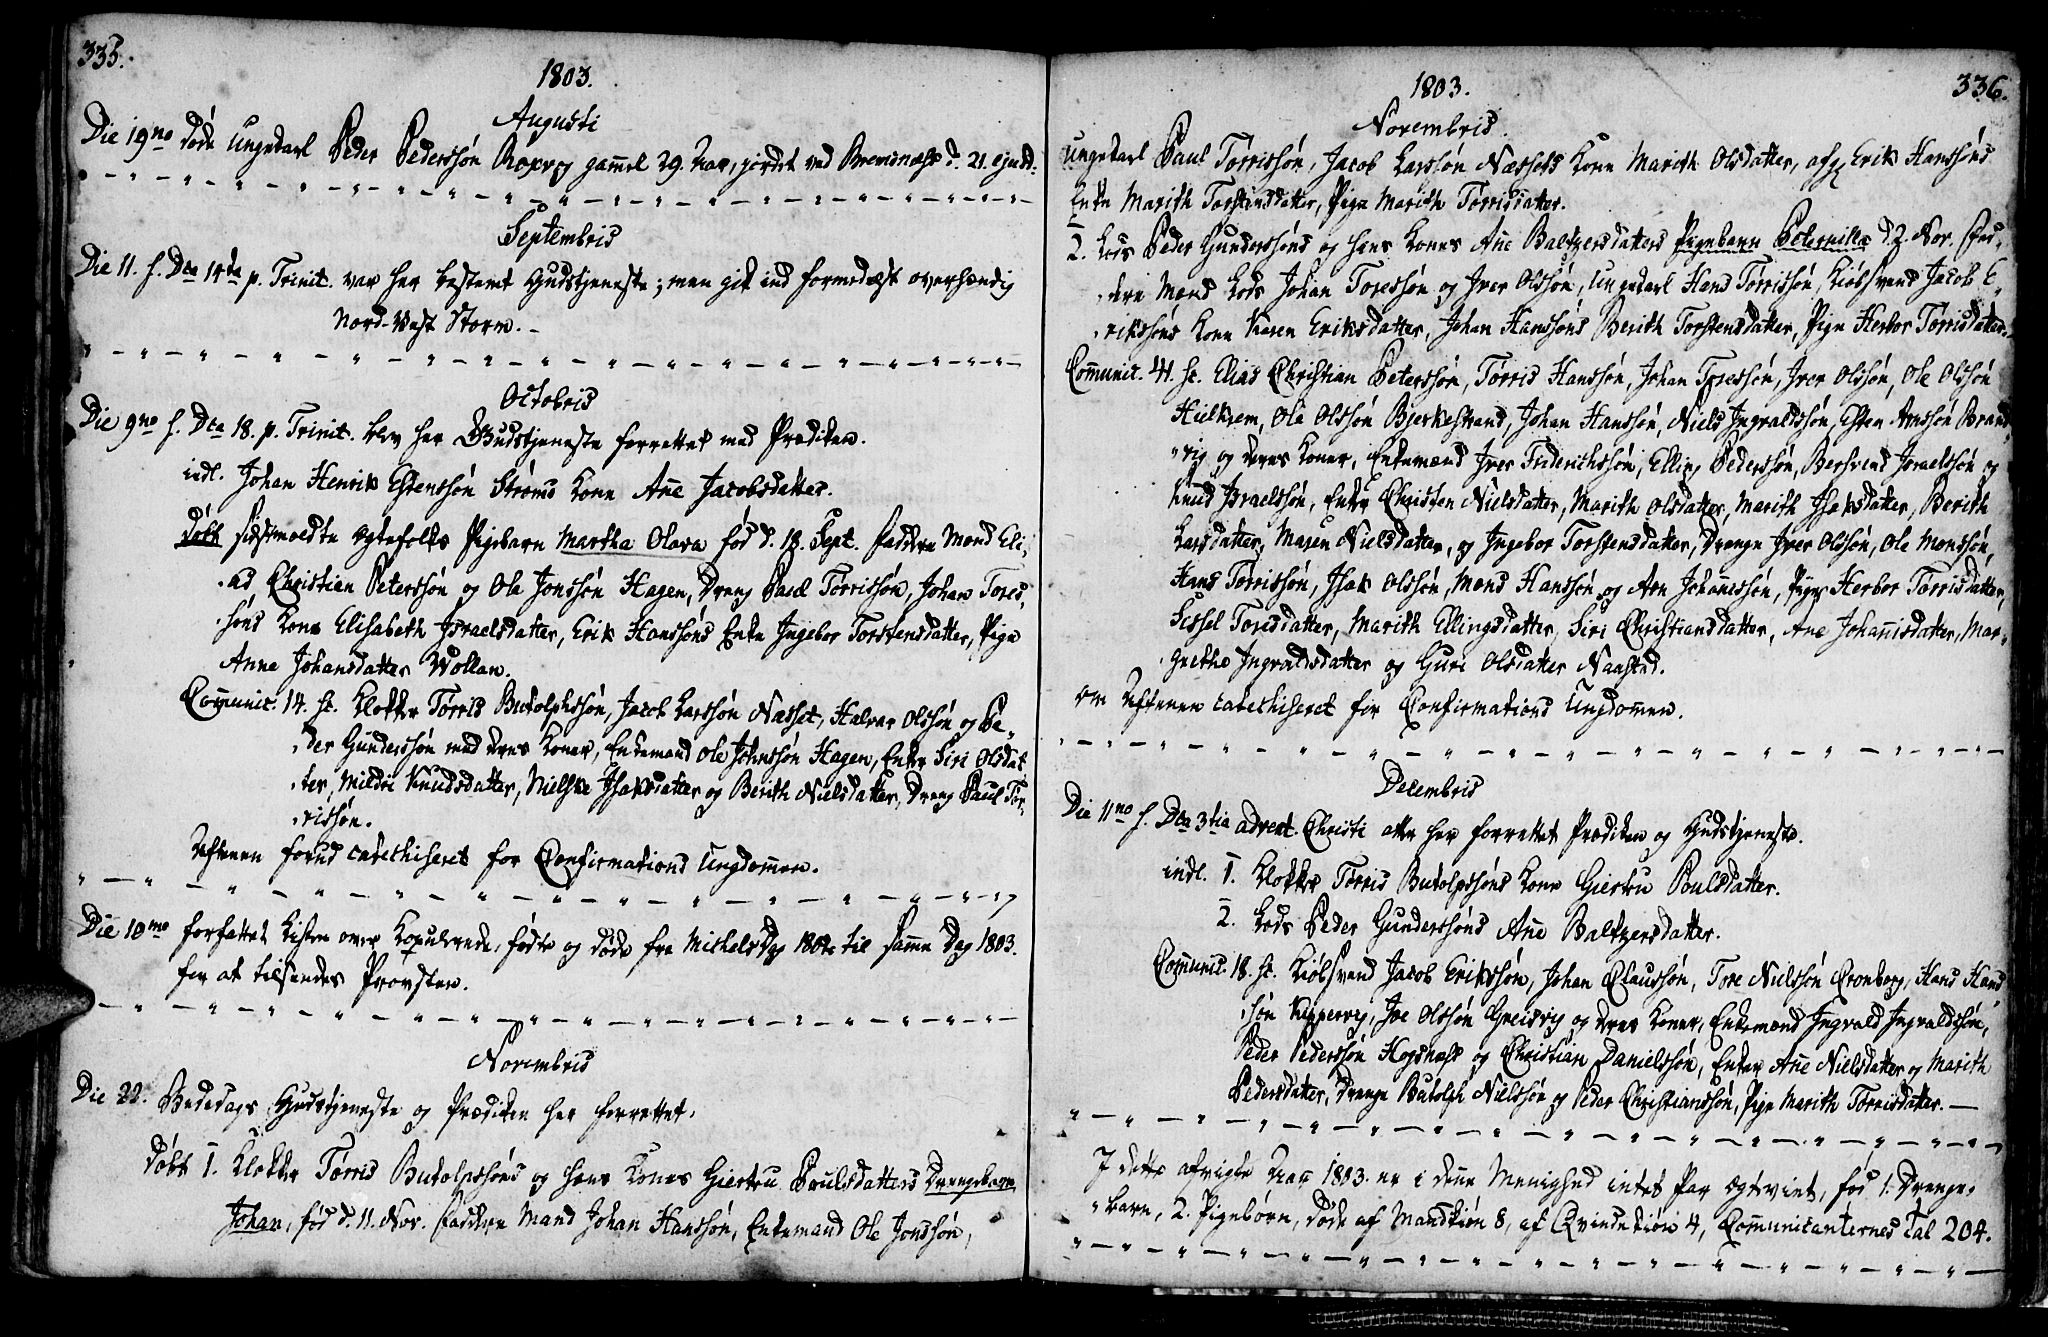 335.
1803.
Augusti
Die 19no døde Ungekarl Peder Pedersøn Røxvog gammel 29. Aar, jordet ved Bremsnæss d. 21. ejusd:
Septembris
Die 11. f. Dca 14da p. Trinit. var her bestemt Gudstjeneste; men gik ind formedelst overhændig
Nord-Vest Storm.
Octobris
Die 9no f. Dca 18. p. Trinit. blev her Gudstjeneste forrettet med Prædiken.
indl. Johan Henrik Estensøn Strøms Kone Ane Jacobsdatter.
døbt sidstmeldte Ægtefolks Pigebarn Martha Olava fød d. 18. Sept. faddere Mend Eli-
-as Christian Petersøn og Ole Jonssøn Hagen, Dreng Paul Tørrissøn, Johan Tores-
-søns Kone Elisabeth Israelsdatter, Erik Hanssøns Enke Ingebor Torstensdatter, Pige
Anne Johansdatter Wollan.
Communic. 14. st. Klokker Tørris Butolphssøn, Jacob Larssøn Næsset, Halvar Olssøn og Pe-
-der Gunderssøn med deres Koner, Enkemand Ole Johnssøn Hagen, Enker Siri Olsdat-
-ter, Mildri Knudsdatter, Nielske Isaksdatter og Berith Nielsdatter, Dreng Paul Tør-
-rissøn.
Aftenen forud catechiseret for Confirmations Ungdommen.
Die 10mo forfattet Listen over Kopulerede, fødte og døde fra Michelsdag 1802 til samme Dag 1803.
for at tilsendes Provsten.
Novembris
Die 22. Bededags Gudstjeneste og Prædiken her forrettet.
døbt 1. Klokker Tørris Butolpssøns og hans Kones Giertru Poulsdatters Drengebarn
Johan, fød d. 11. Nov. faddere Mand Johan Hanssøn, Enkemand Ole Jonssøn,
1803.
336.
Novembris.
Ungekarl Paul Tørrissøn, Jacob Larssøn Næssets Kone Marith Olsdatter, afg. Erik Hanssøns
Enke Marith Torstensdatter, Pige Marith Tørrisdatter.
2. Lods Peder Gunderssøns og hans Kones Ane Baltzersdatters Pigebarn Peternille d. 2. Nov. fad-
-dere Mend Lods Johan Toressøn og Iver Olssøn, Ungekarl Hans Tørrissøn, Kiøbsvend Jacob E-
-rikssøns Kone Karen Eriksdatter, Johan Hanssøns Berith Torstensdatter, Pige Herbor Tørrisdatter.
Communic. 41. st. Elias Christian Peterssøn, Tørris Hanssøn, Johan Toressøn, Iver Olssøn, Ole Olssøn
Hielkrem, Ole Olssøn Bjerkestrand, Johan Hanssøn, Niels Ingvaldssøn, Esten Arnssøn Brand-
-vig og deres Koner, Enkemænd Iver Friderichssøn, Elling Pederssøn, Berhvend Israelssøn og
Knud Israelssøn, Enker Christen Nielsdatter, Marith Olsdatter, Marith Isaksdatter, Berith
Larsdatter, Maren Nielsdatter, og Ingebor Torstensdatter, Drenge Iver Olssøn, Ole Monssøn,
Hans Tørrissøn, Isak Olssøn, Mons Hanssøn og Arn Johannissøn, Piger Herbor Tørrisdatter,
Sissel Toresdatter, Marith Ellingsdatter, Siri Christiansdatter, Ane Johannisdatter, Mar-
-grethe Ingvaldsdatter og Guri Olsdatter Naastad.
om Aftenen catechiseret for Confirmations Ungdommen.
Decembris
Die 11no f. Dca 3tia advent. Christi atter her forrettet Prædiken og Gudstjeneste.
indl. 1. Klokker Tørris Butolpssøns Kone Giertru Poulsdatter.
2. Lods Peder Gunderssøns Ane Baltzersdatter.
Communic. 18. st. Kiøbsvend Jacob Erikssøn, Johan Claussøn, Tore Nielssøn Cronborg, Hans Hans-
-søn Kippervig, Joe Olssøn Greisvig og deres Koner, Enkemænd Ingvald Ingvaldssøn,
Peder Pederssøn Hogsnæss og Christian Danielssøn, Enker Ane Nielsdatter og Marith
Pedersdatter, Drenge Butolph Nielssøn og Peder Christianssøn, Pige Marith Tørrisdatter.
I dette afvigte Aar 1803 er i dene Menighed intet Par ægteviet, fød 1. Drenge-
-barn, 2. Pigebørn, døde af Mandkiøn 8, af Qvindekiøn 4, Communicanternes Tal 204.